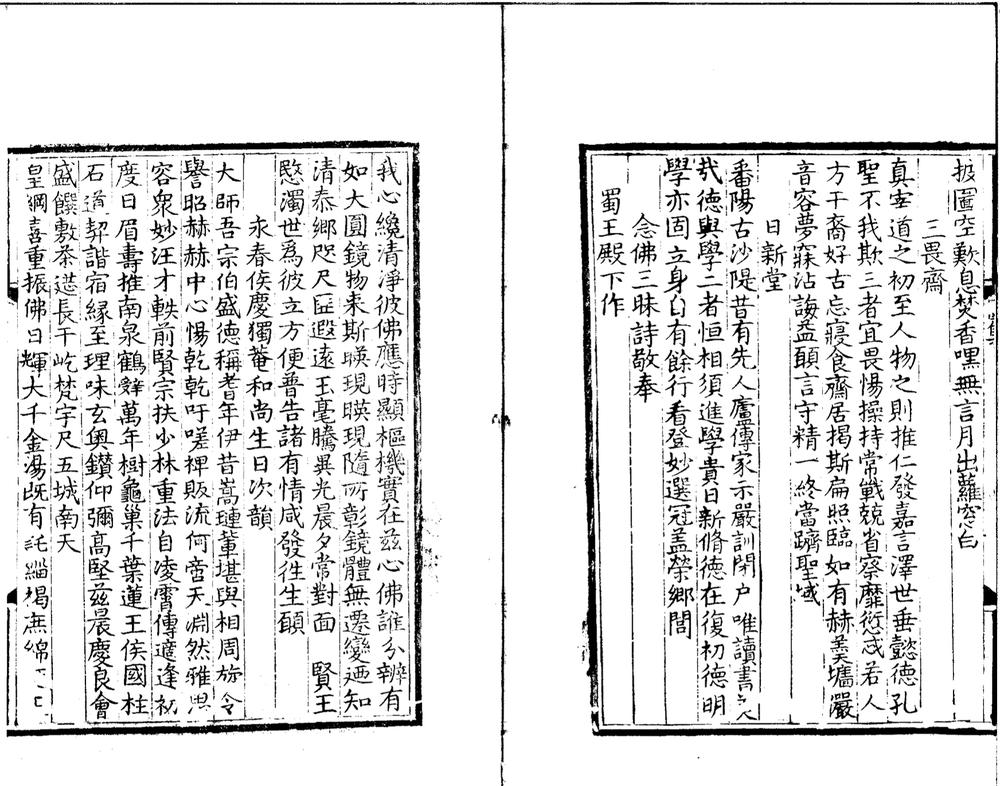 披圖空歎息焚香嘿無言月出蘿窓白
三畏齋
真宰道之初至人物之則推仁發嘉言澤世垂懿德孔
聖不我欺三者宜畏惕操持常戰兢省察靡愆忒若人
方干裔好古忘寢食齋居揭斯扁照臨如有赫羹墻嚴
音容夢寐沾誨益願言守精一終當躋聖域
日新堂
番陽古沙隄昔有先人廬傳家示嚴訓閉户唯讀書
㢤德與學二者恒相須進學貴日新脩德在復初德明
學亦固立身自有餘行看登妙選冠盖榮鄉閭
念佛三昧詩敬奉
蜀王殿下作
我心纔清淨彼佛應時顯樞機實在兹心佛誰分辦有
如大圓鏡物来斯暎現暎現隨所彰鏡體無遷變廼知
清泰鄉咫尺匪遐遠玉毫騰異光晨夕常對面 賢王
愍濁世爲彼立方便普告諸有情咸發徃生願
永春侯慶獨菴和尚生日次韻
大師吾宗伯盛德稱耆年伊昔嵩璉軰堪與相周旋令
譽昭赫赫中心惕乾乾吁嗟稗販流何啻天淵然雅思
容衆妙汪才軼前賢宗扶少林重法自凌霄傳遭逢初
度日眉壽推南泉鶴算萬年樹龜巢千葉蓮王侯國柱
石道契諧宿緣至理味玄奥鑚仰彌髙堅兹晨慶良會
盛饌敷茶筵長干屹梵宇尺五城南天
皇綱喜重振佛日輝大千金湯既有託緇褐庶綿